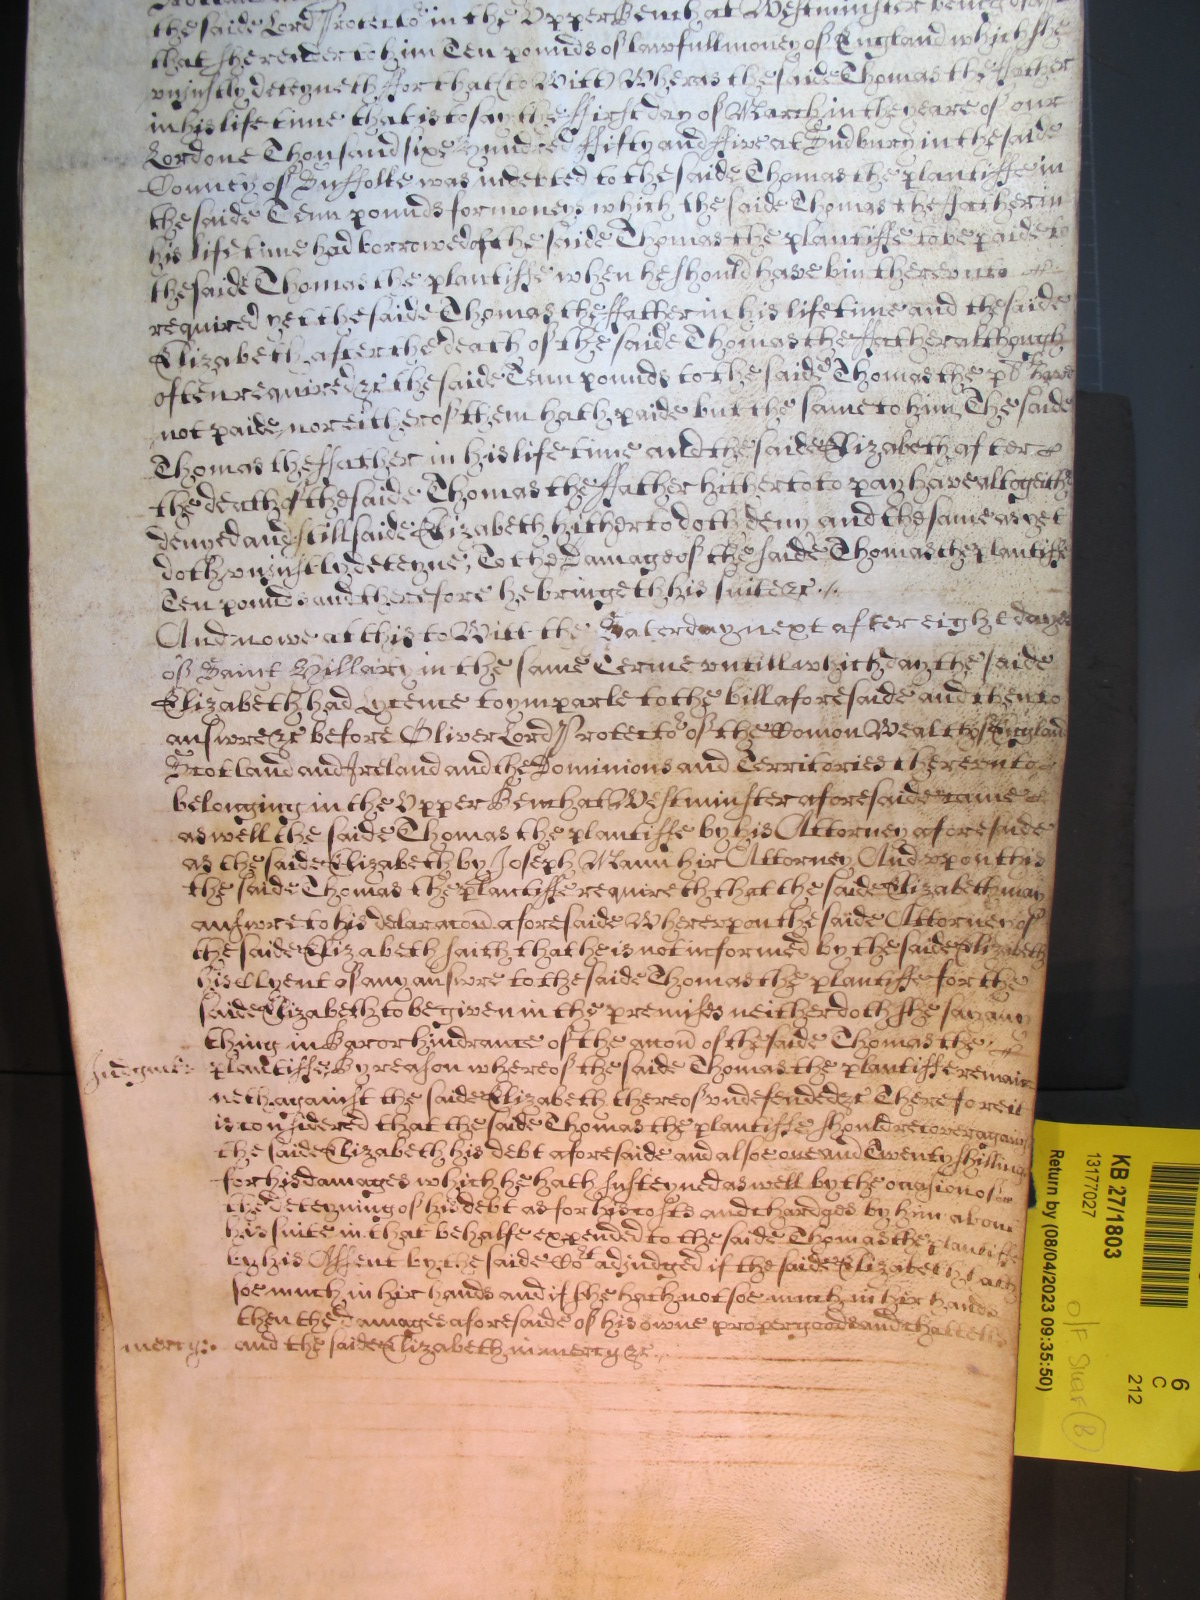 the saide Lord Protector in the Upper Bench at Westminster being of a
that she render to him Tenn pounds of lawfull money of England which she
uniustly deteyneth ffor that (to Witt) Wheras the saide Thomas the ffather
in his life time that is to say the ffirst day of March in the yeare of our
Lord one Thousand sixe hundred ffifty and ffive at Sudbury in the saide
County of Suffolke was indebted to the saide Thomas the plantiffe in
the saide Tenn pounds for moneys which the saide Thomas the ffather in
his life time had borrowed of the saide Thomas the plantiffe to be paide to
the saide Thomas the plantiffe when he should have bin thereunto
required yet the saide Thomas the ffather in his life time and the saide
Elizabeth after the death of the saide Thomas the ffather although
often required &c the saide Tenn pounds to the saide Thomas the pl have
not paide nor either of them hath paide but the same to him The saide
Thomas the ffather in his life time and the saide Elizabeth after
the death of the saide Thomas the ffather hitherto to pay have altogeither
denyed and still saide Elizabeth hitherto doth deny and the same as yet
doth uniustly deteyne, To the Damage of the saide Thomas the plantiffe
Ten pounds and therefore he bringeth his suite &c
And nowe at this to Witt the Saterday next after eight dayes
of Saint Hillary in the same Terme untill which day the saide
Elizabeth had lycence to ymparle to the bill aforesaide and then to
answre &c before Oliver Lord Protector of the Comon Wealth of England
Scotland and Ireland and the Dominions and Territories thereunto
belonging in the Upper Bench at Westminster aforesaide came
as well the saide Thomas the plantiffe by his Attorney aforesaide
as the saide Elizabeth by Joseph Mann hir Attorney And upon this
the saide Thomas the plantiffe requireth that the saide Elizabeth may
answre to his declaracon aforesaide Whereupon the saide Attorney of
the saide Elizabeth saith that he is not informed by the saide Elizabeth
his Clyent of any answre to the saide Thomas the plantiffe for the
saide Elizabeth to be given in the premises neither doth she say any
thing in Bar or hindrance of the accon of the saide Thomas the
Judgment plantiffe By reason whereof the saide Thomas the plantiffe remai
neth against the saide Elizabeth thereof undefended &c Therefore it
is considered that the saide Thomas the plantiffe should recover against
the saide Elizabeth his debt aforesaide and alsoe one and Twenty shillings
for his damages which he hath susteyned as well by the occasion of
the deteyning of his debt as for his costs and chardges by him about
his suite in that behalfe expended to the saide Thomas the plantiffe
by his Assent by the saide Cort adjudged if the saide Elizabeth hath
soe much in hir hands and if she hath not soe much in hir hands
then the Damages aforesaide of his owne proper goods and chattells
mercy: and the saide Elizabeth in mercy &c
KB 27/1803
13177027
Return by (08/04/2023 09:35:50)
6
C
212
B